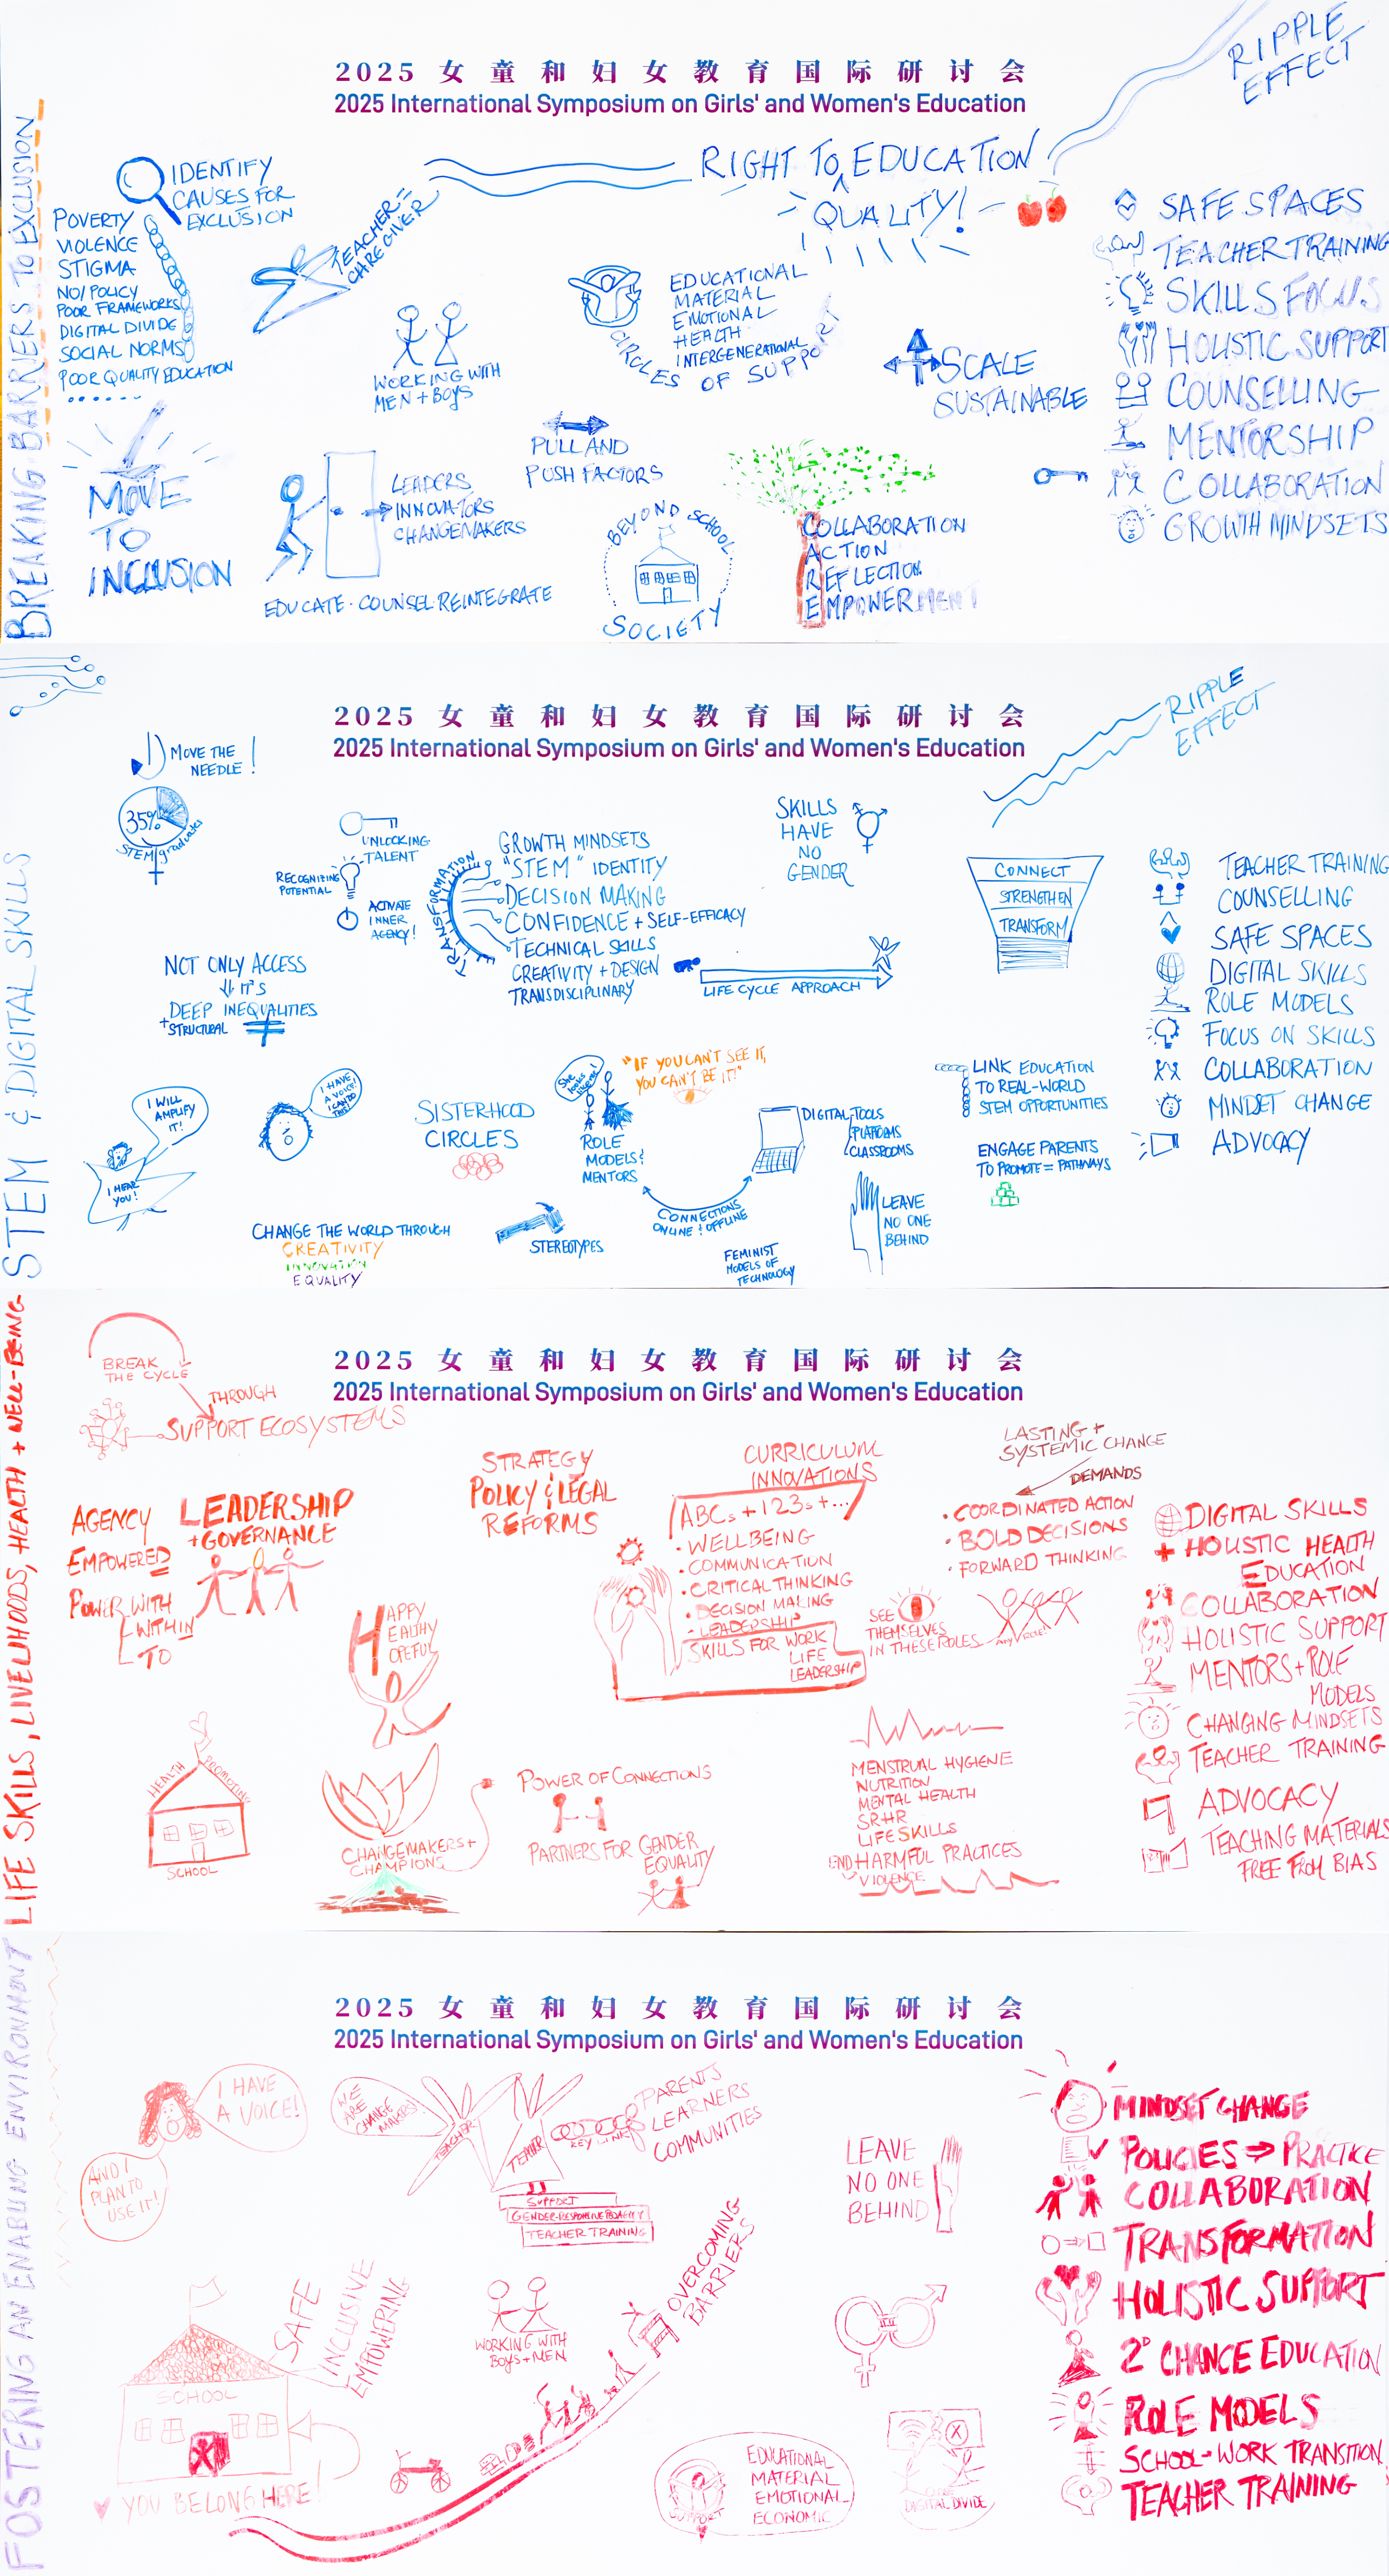 BREAKING BARRIERS TO EXCLUSION
2025 女童和妇女教育国际研讨会
2025 International Symposium on Girls' and Women's Education
RIPPLE
EFFECT
IDENTIFY
CAUSES FOR
EXCLUSION
POVERTY
VIOLENCE
STIGMA
NO/POLICY
POOR FRAMEWORKS
DIGITAL DIVIDE
SOCIAL NORMS
POOR QUALITY EDUCATION
MOVE
TO
INCLUSION
TEACHER =
CAREGIVER
RIGHT TO EDUCATION
^
QUALITY!
WORKING WITH
MEN + BOYS
EDUCATIONAL
MATERIAL
EMOTIONAL
HEALTH
INTERGENERATIONAL
CIRCLES OF SUPPORT
SCALE
SUSTAINABLE
PULL AND
PUSH FACTORS
LEADERS
INNOVATORS
CHANGEMAKERS
EDUCATE · COUNSEL · REINTEGRATE
BEYOND SCHOOL
SOCIETY
COLLABORATION
ACTION
REFLECTION
EMPOWERMENT
SAFE SPACES
TEACHER TRAINING
SKILLS FOCUS
HOLISTIC SUPPORT
COUNSELLING
MENTORSHIP
COLLABORATION
GROWTH MINDSETS
STEM & DIGITAL SKILLS
2025 女童和妇女教育国际研讨会
2025 International Symposium on Girls' and Women's Education
RIPPLE
EFFECT
MOVE THE
NEEDLE!
35%
STEM graduates
UNLOCKING
TALENT
RECOGNIZING
POTENTIAL
ACTIVATE
INNER
AGENCY!
TRANSFORMATION
GROWTH MINDSETS
"STEM" IDENTITY
DECISION MAKING
CONFIDENCE + SELF-EFFICACY
TECHNICAL SKILLS
CREATIVITY + DESIGN
TRANSDISCIPLINARY
SKILLS
HAVE
NO
GENDER
LIFE CYCLE APPROACH
CONNECT
STRENGTHEN
TRANSFORM
NOT ONLY ACCESS
IT'S
DEEP INEQUALITIES
+ STRUCTURAL
I WILL
AMPLIFY
IT!
I HEAR
YOU!
I HAVE
A VOICE!
I CAN DO
THIS!
SISTERHOOD
CIRCLES
She
looks
like me!
ROLE
MODELS &
MENTORS
"IF YOU CAN'T SEE IT,
YOU CAN'T BE IT!"
DIGITAL TOOLS
PLATFORMS
CLASSROOMS
CONNECTIONS
ONLINE & OFFLINE
LINK EDUCATION
TO REAL-WORLD
STEM OPPORTUNITIES
ENGAGE PARENTS
TO PROMOTE = PATHWAYS
LEAVE
NO ONE
BEHIND
CHANGE THE WORLD THROUGH
CREATIVITY
INNOVATION
EQUALITY
STEREOTYPES
FEMINIST
MODELS OF
TECHNOLOGY
TEACHER TRAINING
COUNSELLING
SAFE SPACES
DIGITAL SKILLS
ROLE MODELS
FOCUS ON SKILLS
COLLABORATION
MINDSET CHANGE
ADVOCACY
LIFE SKILLS, LIVELIHOODS, HEALTH + WELL-BEING
2025 女童和妇女教育国际研讨会
2025 International Symposium on Girls' and Women's Education
BREAK
THE CYCLE
THROUGH
SUPPORT ECOSYSTEMS
AGENCY
EMPOWERED
POWER WITH
WITHIN
TO
LEADERSHIP
+ GOVERNANCE
HAPPY
HEALTHY
HOPEFUL
STRATEGY
POLICY & LEGAL
REFORMS
CURRICULUM
INNOVATIONS
ABCs + 123s + ...
· WELLBEING
· COMMUNICATION
· CRITICAL THINKING
· DECISION MAKING
· LEADERSHIP
SKILLS FOR WORK
LIFE
LEADERSHIP
LASTING +
SYSTEMIC CHANGE
DEMANDS
· COORDINATED ACTION
· BOLD DECISIONS
· FORWARD THINKING
SEE
THEMSELVES
IN THESE ROLES
ANY ROLE!
HEALTH PROMOTING
SCHOOL
CHANGEMAKERS +
CHAMPIONS
POWER OF CONNECTIONS
PARTNERS FOR GENDER
EQUALITY
MENSTRUAL HYGIENE
NUTRITION
MENTAL HEALTH
SRHR
LIFE SKILLS
END HARMFUL PRACTICES
VIOLENCE
DIGITAL SKILLS
+ HOLISTIC HEALTH
EDUCATION
COLLABORATION
HOLISTIC SUPPORT
MENTORS + ROLE
MODELS
CHANGING MINDSETS
TEACHER TRAINING
ADVOCACY
TEACHING MATERIALS
FREE FROM BIAS
FOSTERING AN ENABLING ENVIRONMENT
2025 女童和妇女教育国际研讨会
2025 International Symposium on Girls' and Women's Education
I HAVE
A VOICE!
AND I
PLAN TO
USE IT!
WE
ARE
CHANGE
MAKERS!
TEACHER
TEACHER
KEY LINK
PARENTS
LEARNERS
COMMUNITIES
SUPPORT
GENDER-RESPONSIVE PEDAGOGY
TEACHER TRAINING
LEAVE
NO ONE
BEHIND
SAFE
INCLUSIVE
EMPOWERING
SCHOOL
YOU BELONG HERE!
WORKING WITH
BOYS + MEN
OVERCOMING
BARRIERS
SUPPORT
EDUCATIONAL
MATERIAL
EMOTIONAL
ECONOMIC
CLOSE
DIGITAL DIVIDE
MINDSET CHANGE
POLICIES ⇒ PRACTICE
COLLABORATION
TRANSFORMATION
HOLISTIC SUPPORT
2° CHANCE EDUCATION
ROLE MODELS
SCHOOL-WORK TRANSITION
TEACHER TRAINING